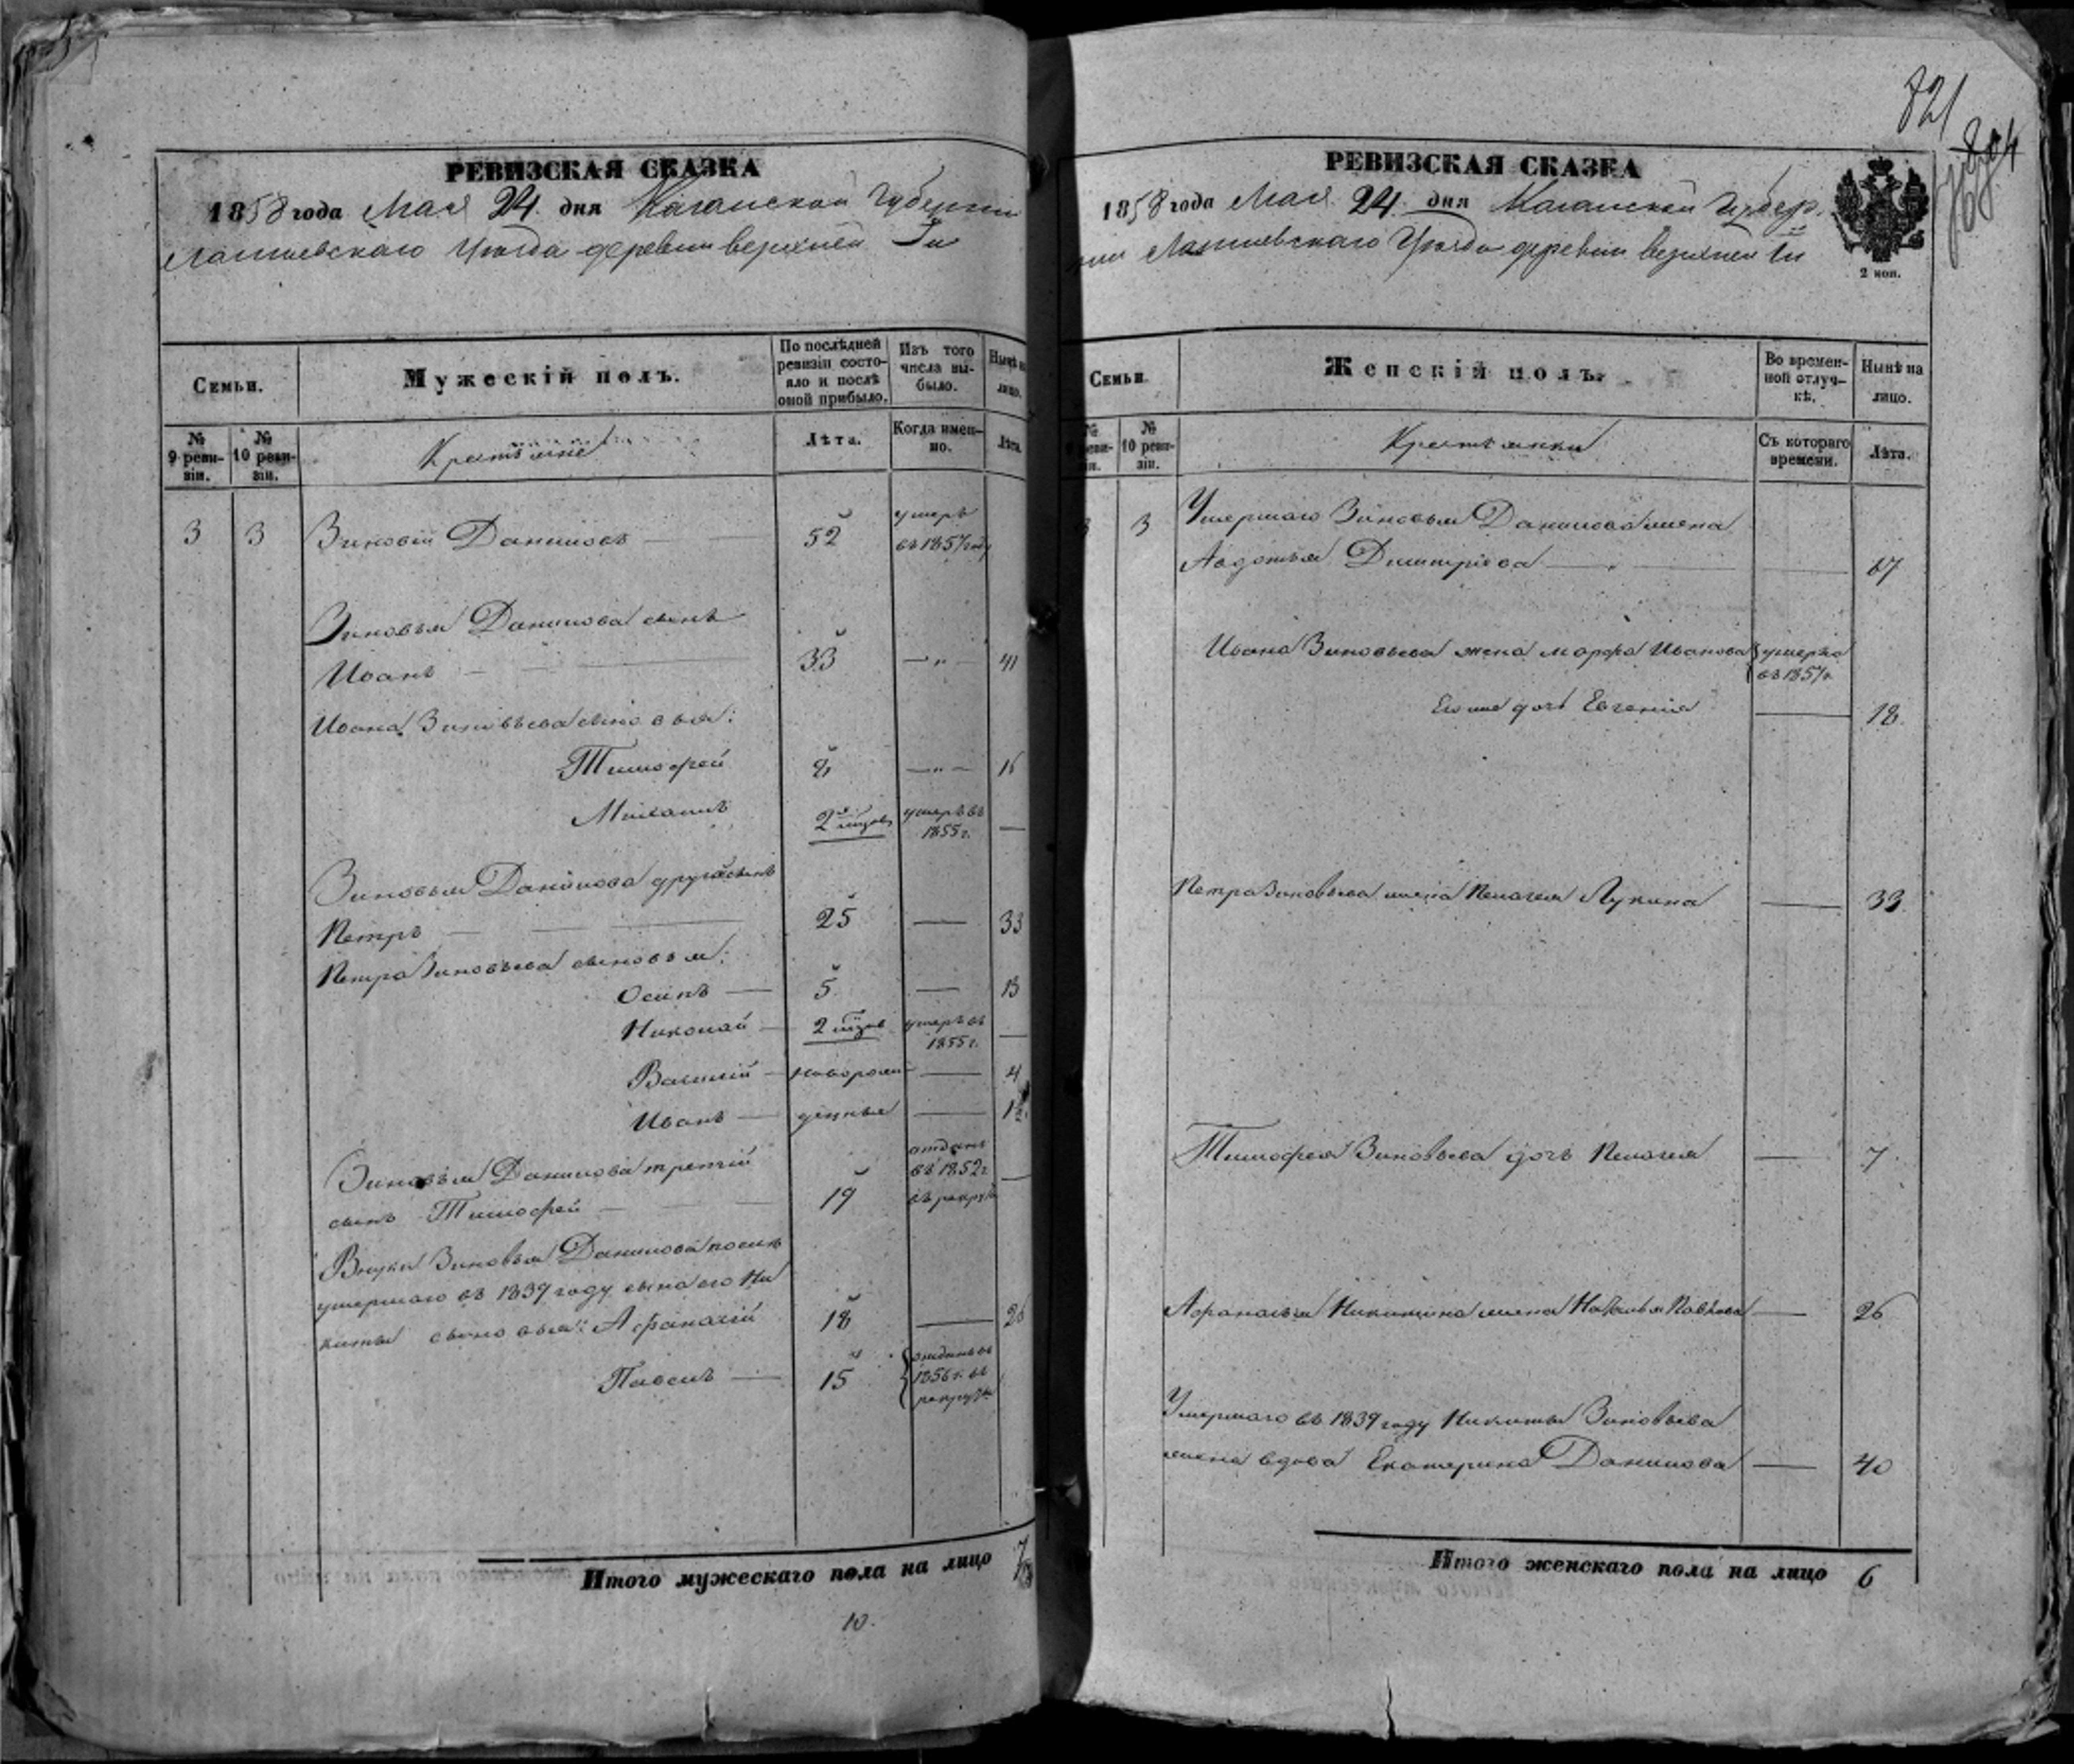 РЕВИЗСКАЯ СКАЗКА
1858 года Мая 24. дня Казанской Губерніи
Лаишевскаго Уѣзда деревни верхней
Семьи.
Мужескій полъ.
По послѣдней ревизіи состо-
яло и послѣ оной прибыло.
Изъ того числа вы-
было.
Нынѣ на лицо.
№ 9 реви-
зіи.
№ 10 реви-
зіи.
Крестьяне
Лѣта.
Когда имен-
но.
Лѣта.
3 3 Зиновій Даниловъ 52 умеръ
въ 1857 году
Зиновья Данилова сынъ
Иванъ 33 41
Ивана Зиновьева сыновья:
Тимофей 8 16
Михаилъ 2 умеръ въ
1855 г.
Зиновья Данилова другой сынъ
Петръ 25 33
Петра Зиновьева сыновья:
Осипъ 5 13
Николай 2 умеръ въ
1855 г.
Василій новорож- 4
Иванъ денные 1
Зиновья Данилова третій
сынъ Тимофей 19 отданъ
въ 1852 г
въ рекруты
Внуки Зиновья Данилова послѣ
умершаго въ 1839 году сына его Ни
киты сыновья: Афанасій 18 26
Павелъ 15 отданъ въ
1856 г. въ
рекруты
Итого мужескаго пола на лицо 7
10.
821
РЕВИЗСКАЯ СКАЗКА
1858 года Мая 24. дня Казанской Губер-
ніи Лаишевскаго Уѣзда деревни верхней
2 коп.
Семьи
Женскій полъ.
Во времен-
ной отлуч-
кѣ.
Нынѣ на лицо.
№ 9 реви-
зіи.
№ 10 реви-
зіи.
Крестьянки
Съ котораго времени.
Лѣта.
3 3 Умершаго Зиновья Данилова жена
Авдотья Дмитріева 67
Ивана Зиновьева жена Марфа Иванова умерла
въ 1857 г.
Его же дочь Евгенія 18
Петра Зиновьева жена Пелагея Лукина 33
Тимофея Зиновьева дочь Пелагея 7
Афанасья Никитина жена Наталья Павлова 26
Умершаго въ 1839 году Никиты Зиновьева
жена вдова Екатерина Данилова 40
Итого женскаго пола на лицо 6